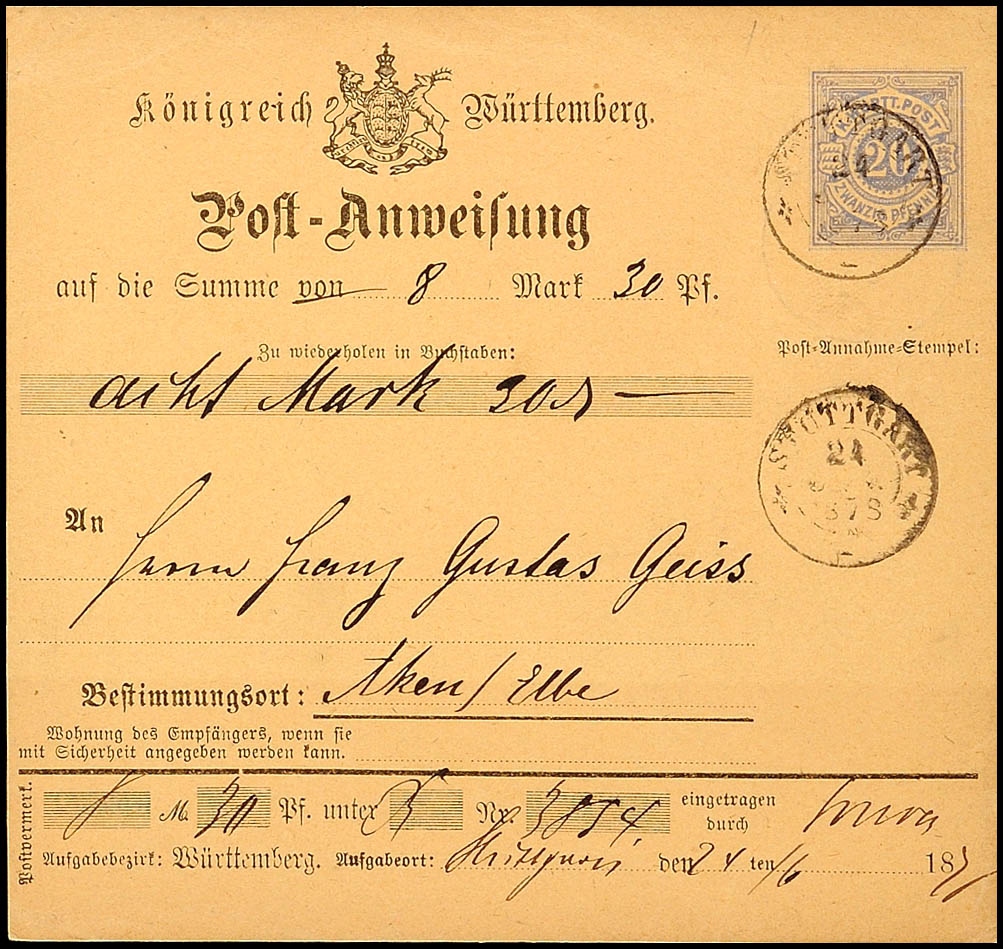 Königreich Württemberg.
K. WÜRTT. POST
20
ZWANZIG PFENNIG
STUTTGART
24
Post-Anweisung
auf die Summe von 8 Mark 30 Pf.
Zu wiederholen in Buchstaben:
Post-Annahme-Stempel:
acht Mark
STUTTGART
24
1878
An
Herrn Franz Gustav Geiss
Bestimmungsort: Aken / Elbe
Wohnung des Empfängers, wenn sie
mit Sicherheit angegeben werden kann.
Postvermerk.
8 M. 30 Pf. unter Nr. 3854 eingetragen
durch
Aufgabebezirk: Württemberg. Aufgabeort: Stuttgart den 24 ten /6 187